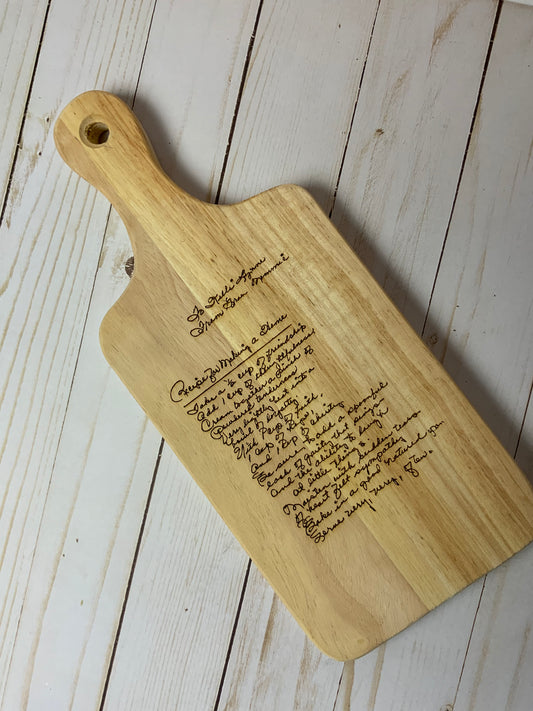 To Kelli Lynne
From Grea Mommie
Recipe for Making a Home
Take a ½ cup of friendship
Add 1 cup of thoughtfulness,
Cream together a pinch of
Powdered tenderness
Very lightly beat into a
bowl of loyalty
With 1 cup of faith,
1 cup of hope,
And 1 cup of charity
Be sure to add a spoonful
each of gaiety that sings
And the ability to laugh
at little things
Moisten with sudden tears
Of heart felt sympathy
Bake in a good natured pan
Serve very, very,